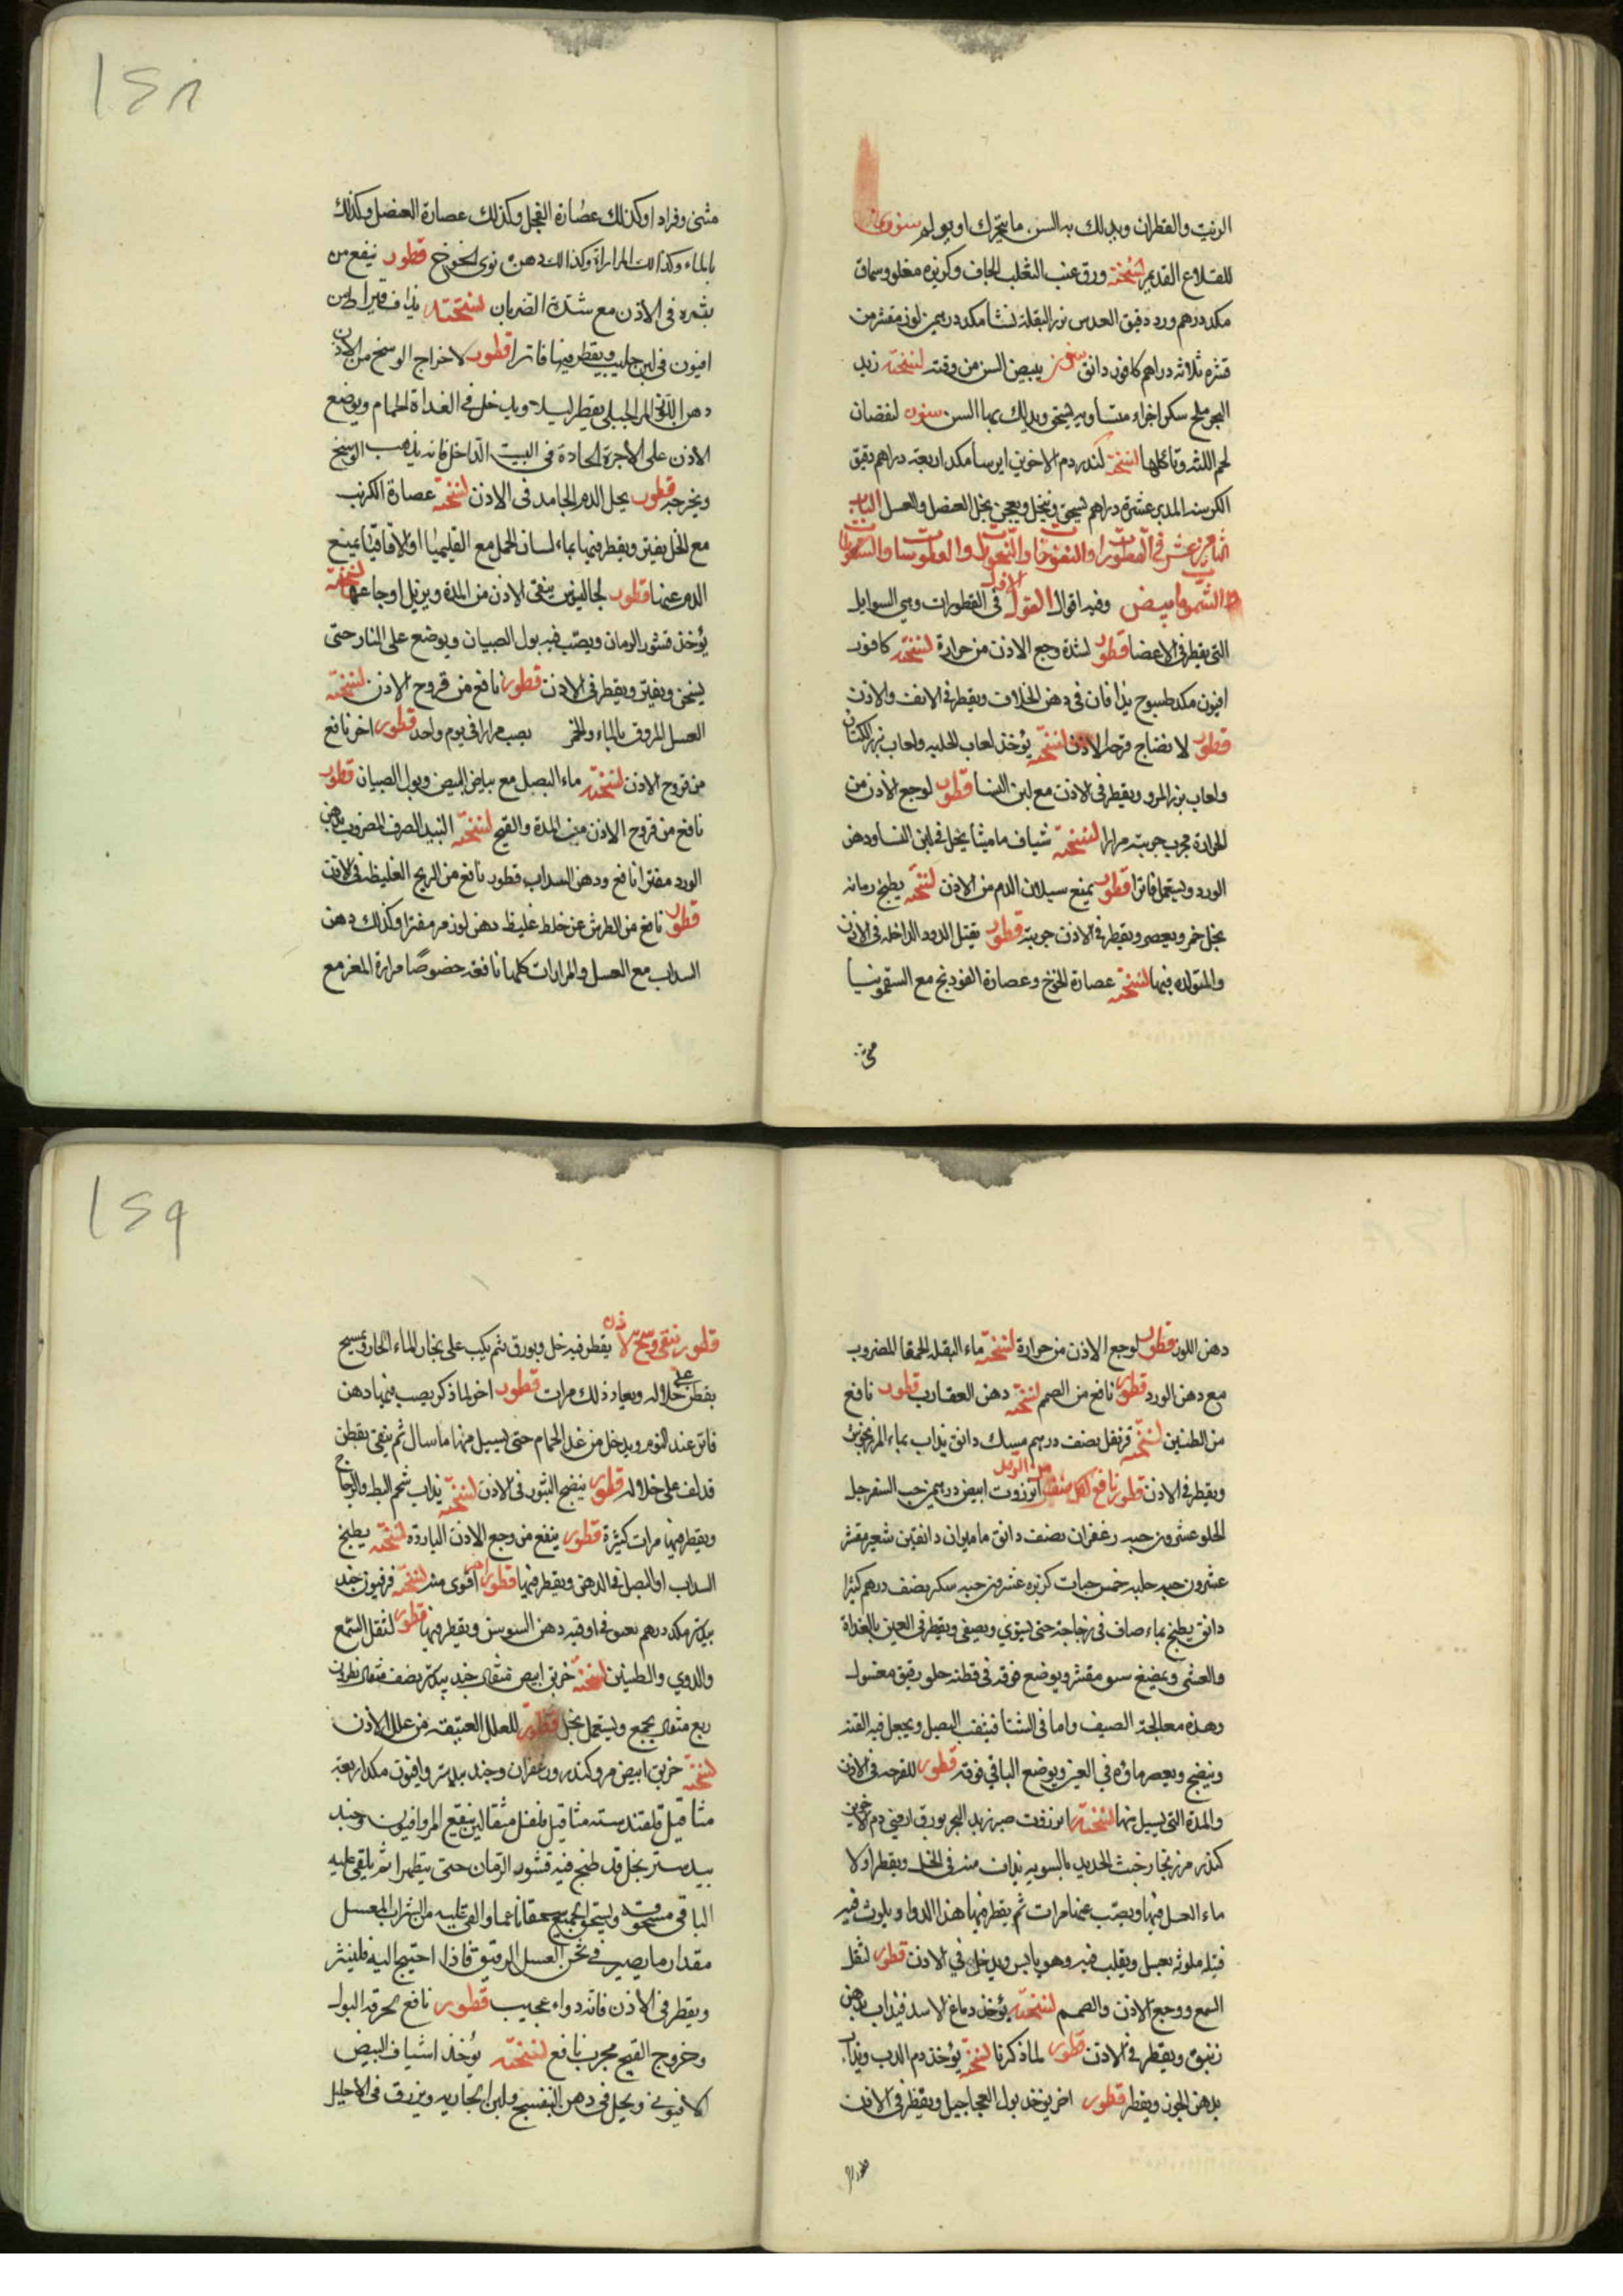 ١٤٨
الزفت والقطران ويدلك به السن ما يتحرك او يولم سنون
للقلاع القديم نسخته ورق عنب الثعلب الجاف وكزبره مغلو وسماق
مكد درهم ورد دقيق العدس بزر البقلة نشا مكد درهمين لوز مقشر من
قشره ثلاثه دراهم كافور دانق سنون يبيض السن من وقته نسخته زبد
البحر ملح سكر اجزاء متساويه يسحق ويدلك بها السن سنون لنقصان
لحم اللثه وتاكلها نسخته كندر دم الاخوين ايرسا مكد اربعة دراهم دقيق
الكرسنه المدبر عشرة دراهم يسحق وينخل ويعجن بخل العنصل والعسل الباب
الثامن عشر في القطورات والنفوخات والعطوسات والسعوطات
وفيه اقوال القول الاول في القطورات وهي السوايل
التي يقطر في الاعضا قطور لشدة وجع الاذن من حرارة نسخته كافور
افيون مكد طسوج يذافان في دهن الخلاف ويقطر في الانف والاذن
قطور لا نضاج قرحة الاذن نسخته يؤخذ لعاب الحلبه ولعاب بزر الكتان
ولعاب بزر المرو ويقطر في الاذن مع لبن النسا قطور لوجع الاذن من
الحرارة مجرب جربته مرارا نسخته شياف ماميثا يحل في لبن النسا ودهن
الورد ويستعمل فاترا قطور يمنع سيلان الدم من الاذن نسخته يطبخ رمانه
بخل خمر ويعصر ويقطر في الاذن جربته قطور يقتل الدود الداخله في الاذن
والمتولده فيها نسخته عصارة الخوخ وعصارة الفودنج مع السقمونيا
مثنى وفرادا وكذلك عصارة الفجل وكذلك عصارة العنصل وكذلك
بالماء وكذالك المرارة وكذالك دهن نوى الخوخ قطور ينفع من
بثره في الاذن مع شدة الضربان نسخته يذاف قيراطين
افيون في لبن حليب ويقطر فيها فاترا قطور لاخراج الوسخ من الاذن
دهن اللوز المر الجبلي يقطر ليلا ويدخل في الغداة الحمام ويوضع
الاذن على الاجرة الحادة في البيت الداخل فانه يذهب الوسخ
ويخرجه قطور يحل الدم الجامد في الاذن نسخته عصارة الكرنب
مع الخل يفتر ويقطر فيها بماء لسان الحمل مع القليميا او الاقاقيا يمنع
الدم عنها قطور لجالينوس ينقي الاذن من المدة ويزيل اوجاعها نسخته
يؤخذ قشور الرمان ويصب فيه بول الصبيان ويوضع على النار حتى
يسخن ويفتر ويقطر في الاذن قطور نافع من قروح الاذن نسخته
العسل المروق بالماء والخمر يصب مرارا في يوم واحد قطور اخر نافع
من قروح الاذن نسخته ماء البصل مع بياض البيض وبول الصبيان قطور
نافع من قروح الاذن من المدة والقيح نسخته النبيذ الصرف المضروب بدهن
الورد مفترا نافع ودهن السداب قطور نافع من الريح الغليظه في الاذن
قطور نافع من الطرش عن خلط غليظ دهن لوز مر مفترا وكذلك دهن
السداب مع العسل والمرارات كلها نافعه خصوصا مرارة المعز مع
١٤٩
دهن اللوز قطور لوجع الاذن من حرارة نسخته ماء البقله الحمقا المضروب
مع دهن الورد قطور نافع من الصمم نسخته دهن العقارب قطور نافع
من الطنين نسخته قرنفل نصف درهم مسك دانق يذاب بماء المرزنجوش
ويقطر في الاذن قطور نافع لكل صنف من الرمد انزروت ابيض درهمين حب السفرجل
الحلو عشرون حبه زعفران نصف دانق ماميران دانقين شعير مقشر
عشرون حبه حلبه خمس حبات كزبره عشرون حبه سكر نصف درهم كثيرا
دانق يطبخ بماء صاف في زجاجة حتى يستوي ويصفى ويقطر في العين بالغداة
والعشي ويمضغ مقشر ويوضع فوقه في قطنه خلو رقيق مغسول
وهذه معالجة الصيف واما في الشتا فيثقب البصل ويجعل فيه القند
وينضج ويعصر ماؤه في العين ويوضع الباقي فوقه قطور للقرحه في الاذن
والمدة التي يسيل منها نسخته انزروت صبر زبد البحر بورق ارمني دم الاخوين
كندر مر زنجار خبث الحديد بالسويه يذاب منه في الخل ويقطر اولا
ماء العسل فيها ويصب عنها مرات ثم يقطر فيها هذا الدوا ويلوث فيه
فتيله ملوثه بعسل ويقلب فيه وهو يابس ويدخل في الاذن قطور لثقل
السمع ووجع الاذن والصمم نسخته يؤخذ دماغ الاسد فيذاب بدهن
زنبق ويقطر في الاذن قطور لما ذكرنا نسخته يؤخذ دم الدب ويذاب
بدهن الجوز ويقطر قطور اخر يوخذ بول العجاجيل ويقطر في الاذن
قطور ينقي وسخ الاذن يقطر فيه خل وبورق ثم يكب على بخار الماء الحار ويمسح
بقطن على خلاله ويعاد ذلك مرات قطور اخر لما ذكر يصب فيها دهن
فاتر عند النوم ويدخل من غد الحمام حتى يسيل منها ما سال ثم ينقى بقطن
قد لف على خلاله قطور ينضج البثور في الاذن نسخته يذاب شحم البط والدجاج
ويقطر فيها مرات كثيرة قطور ينفع من وجع الاذن البارده نسخته يطبخ
السداب او البصل في الدهن ويقطر فيها قطور اخر اقوى منه نسخته فرفيون جند
بيدستر مكد درهم في اوقيه دهن السوسن ويقطر فيها قطور لثقل السمع
والدوي والطنين نسخته خربق ابيض مثقال جند بيدستر نصف مثقال نطرون
ربع مثقال يجمع ويستعمل بخل قطور للعلل العتيقه من علل الاذن
نسخته خربق ابيض مر وكندر وزعفران وجند بيدستر وافيون مكد اربعة
مثاقيل قلقند سته مثاقيل فلفل مثقالين ينقع المر وافيون وجند
بيدستر بخل قد طبخ فيه قشور الرمان حتى يتطهرا ثم يلقى عليه
الباقي مسحوقه ويسحق الجميع سحقا ناعما والقي عليه من الشراب المعسل
مقدار ما يصير في ثخن العسل الرقيق فاذا احتيج اليه فليفتر
ويقطر في الاذن فانه دواء عجيب قطور نافع لحرقة البول
وخروج القيح مجرب نافع نسخته يؤخذ اشياف البيض
الافيوني ويحل في دهن البنفسج ولبن الجاريه ويزرق في الاحليل